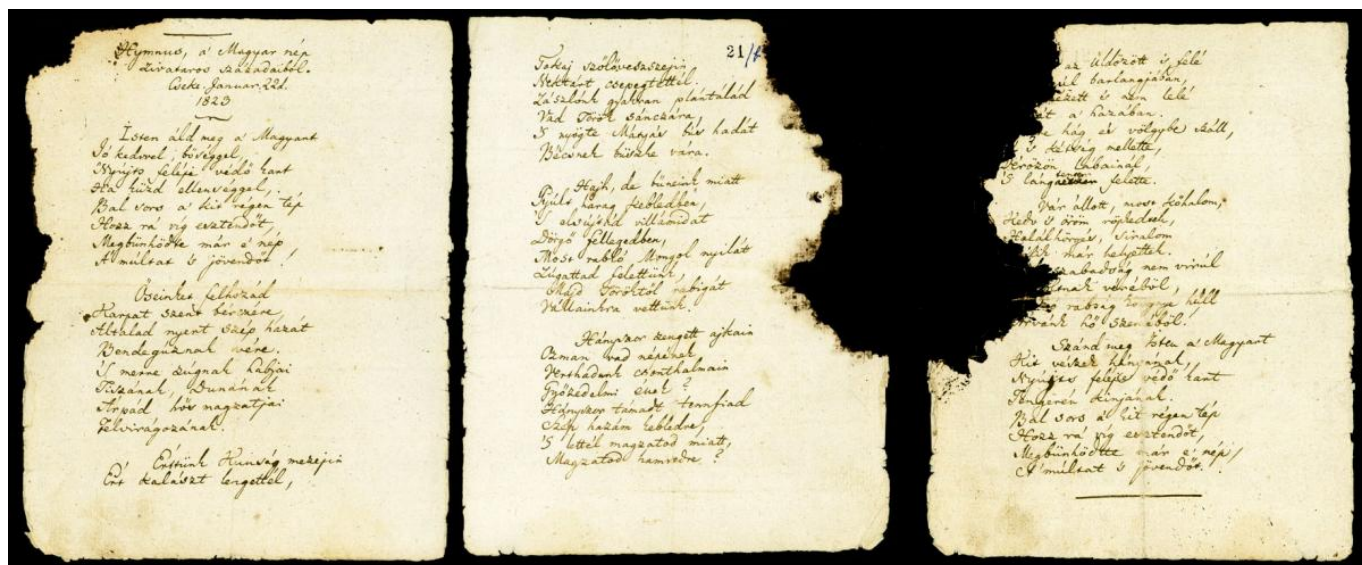 Hymnus, a' Magyar nép
zivataros századaiból.
Cseke. Januar. 22d.
1823
Isten áld meg a' Magyart
Jó kedvvel, bőséggel,
Nyújts feléje védő kart
Ha küzd ellenséggel,
Bal sors a' kit régen tép
Hozz rá víg esztendőt,
Megbűnhődte már e' nép
A' múltat 's jövendőt!
Őseinket felhozád
Kárpát szent bérczére,
Általad nyert szép hazát
Bendegúznak vére.
'S merre zúgnak habjai
Tiszának, Dunának
Árpád hős magzatjai
Felvirágozának.
Értünk Kunság mezejin
Ért kalászt lengettél,
21/
Tokaj szőlővesszejin
Nektárt csepegtettél.
Zászlónk gyakran plántálád
Vad Török sánczára,
'S nyögte Mátyás bús hadát
Bécsnek büszke vára.
Hajh, de bűneink miatt
Gyúlt harag kebledben,
'S elsújtád villámidat
Dörgő fellegedben,
Most rabló Mongol nyilát
Zúgattad felettünk,
Majd Töröktől rabigát
Vállainkra vettünk.
Hányszor zengett ajkain
Ozman vad népének
Vert hadunk csonthalmain
Győzedelmi ének?
Hányszor támadt tennfiad
Szép hazám kebledre,
'S lettél magzatod miatt,
Magzatod hamvvedre?
az Üldözött 's felé
barlangjában,
's nem lelé
a' hazában.
hág és völgybe száll,
's kétség mellette,
Vérözön lábainál,
'S lángtenger felette.
Vár állott, most kőhalom,
Kedv 's öröm röpkedtek,
Halálhörgés, siralom
már helyettek.
szabadság nem virúl
véréből,
rabság könnye hull
hő szeméből!
Szánd meg Isten a' Magyart
Kit vészek hányának,
Nyújts feléje védő kart
Tengerén kínjának.
Bal sors a' kit régen tép
Hozz rá víg esztendőt,
Megbűnhődte már e' nép
A' múltat 's jövendőt.